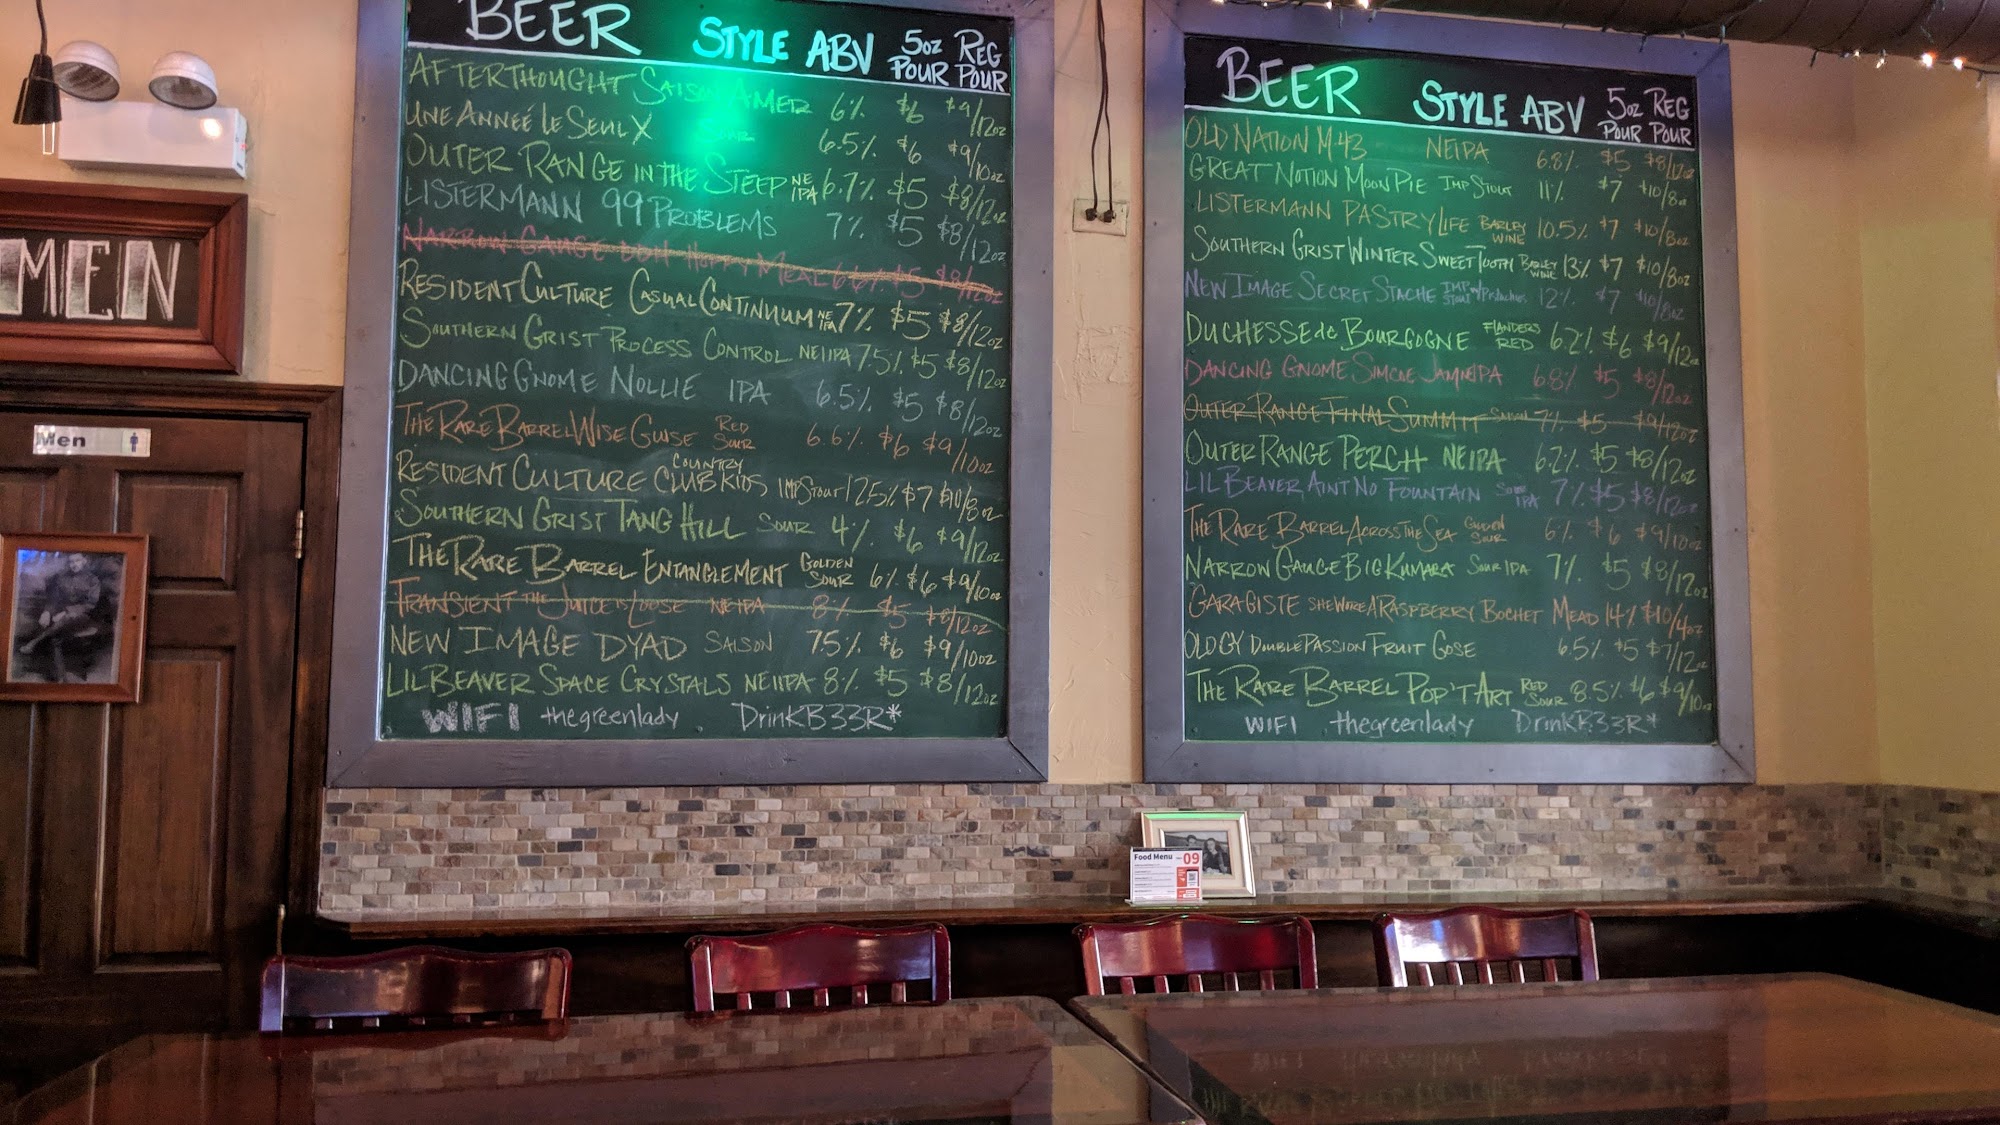 MEN
Men
BEER STYLE ABV 5oz POUR REG POUR
AFTERTHOUGHT SAISON AMER 6% $6 $9/12oz
UNE ANNEÉ LE SEUL X SOUR 6.5% $6 $9/10oz
OUTER RANGE IN THE STEEP NE IPA 6.7% $5 $8/12oz
LISTERMANN 99 PROBLEMS 7% $5 $8/12oz
NARROW GAUGE DDH HOPPY MEAL 6.6% $5 $8/12oz
RESIDENT CULTURE CASUAL CONTINUUM NE IPA 7% $5 $8/12oz
SOUTHERN GRIST PROCESS CONTROL NEIIPA 7.5% $5 $8/12oz
DANCING GNOME NOLLIE IPA 6.5% $5 $8/12oz
THE RARE BARREL WISE GUISE RED SOUR 6.6% $6 $9/10oz
RESIDENT CULTURE COUNTRY CLUB KIDS IMP STOUT 12.5% $7 $10/8oz
SOUTHERN GRIST TANG HILL SOUR 4% $6 $9/12oz
THE RARE BARREL ENTANGLEMENT GOLDEN SOUR 6% $6 $9/10oz
TRANSIENT THE JUICE IS LOOSE NEIPA 8% $5 $8/12oz
NEW IMAGE DYAD SAISON 7.5% $6 $9/10oz
LIL BEAVER SPACE CRYSTALS NEIIPA 8% $5 $8/12oz
WIFI thegreenlady. DrinKB33R*
BEER STYLE ABV 5oz POUR REG POUR
OLD NATION M43 NEIPA 6.8% $5 $8/12oz
GREAT NOTION MOON PIE IMP STOUT 11% $7 $10/8oz
LISTERMANN PASTRY LIFE BARLEY WINE 10.5% $7 $10/8oz
SOUTHERN GRIST WINTER SWEET TOOTH BARLEY WINE 13% $7 $10/8oz
NEW IMAGE SECRET STACHE IMP STOUT w/ Pistachios 12% $7 $10/8oz
DUCHESSE de BOURGOGNE FLANDERS RED 6.2% $6 $9/12oz
DANCING GNOME SIMCOE JAM NEIPA 6.8% $5 $8/12oz
OUTER RANGE FINAL SUMMIT SAISON 7% $5 $9/12oz
OUTER RANGE PERCH NEIPA 6.2% $5 $8/12oz
LIL BEAVER AINT NO FOUNTAIN SOUR IPA 7% $5 $8/12oz
THE RARE BARREL ACROSS THE SEA GOLDEN SOUR 6% $6 $9/10oz
NARROW GAUGE BIG KUMARA SOUR IPA 7% $5 $8/12oz
GARAGISTE SHE WORE A RASPBERRY BOCHET MEAD 14% $10/4oz
OLOGY DOUBLE PASSION FRUIT GOSE 6.5% $5 $7/12oz
THE RARE BARREL POP'T ART RED SOUR 8.5% $6 $9/10oz
WIFI thegreenlady DrinKB33R*
Food Menu 09